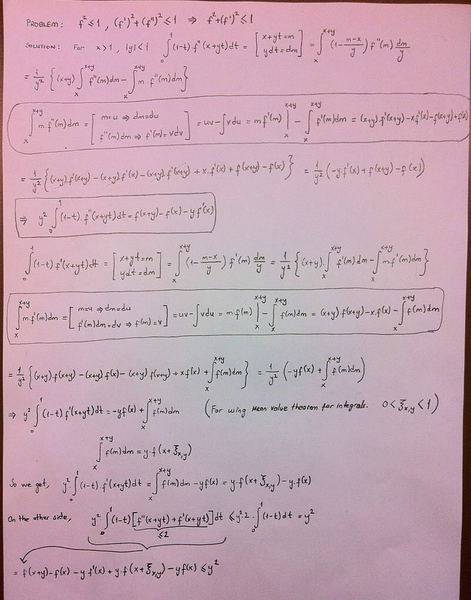 PROBLEM: f² ≤ 1, (f')² + (f'')² ≤ 1 ⇒ f² + (f')² ≤ 1
SOLUTION: For x > 1, |y| < 1 ∫₀¹ (1-t).f''(x+yt)dt = [x+yt=m, ydt=dm] = ∫ₓ^{x+y} (1 - (m-x)/y) f''(m) dm/y
= 1/y² {(x+y)∫ₓ^{x+y} f''(m)dm - ∫ₓ^{x+y} m f''(m)dm}
∫ₓ^{x+y} m.f''(m)dm = [m=u ⇒ dm=du, f''(m)dm ⇒ f'(m)=v dv] = uv - ∫vdu = m f'(m)|ₓ^{x+y} - ∫ₓ^{x+y} f'(m)dm = (x+y).f'(x+y) - x.f'(x) - f(x+y) + f(x)
= 1/y² {(x+y).f'(x+y) - (x+y).f'(x) - (x+y).f'(x+y) + x.f'(x) + f(x+y) - f(x)} = 1/y² (-y.f'(x) + f(x+y) - f(x))
⇒ y² ∫₀¹ (1-t).f''(x+yt)dt = f(x+y) - f(x) - y f'(x)
∫₀¹ (1-t) f'(x+yt)dt = [x+yt=m, ydt=dm] = ∫ₓ^{x+y} (1 - (m-x)/y) f'(m) dm/y = 1/y² {(x+y).∫ₓ^{x+y} f'(m)dm - ∫ₓ^{x+y} m.f'(m)dm}
∫ₓ^{x+y} m f'(m)dm = [m=u ⇒ dm=du, f'(m)dm=dv ⇒ f(m)=v] = uv - ∫vdu = m.f(m)|ₓ^{x+y} - ∫ₓ^{x+y} f(m)dm = (x+y).f(x+y) - x.f(x) - ∫ₓ^{x+y} f(m)dm
= 1/y² {(x+y).f(x+y) - (x+y).f(x) - (x+y).f(x+y) + x.f(x) + ∫ₓ^{x+y} f(m)dm} = 1/y² (-yf(x) + ∫ₓ^{x+y} f(m)dm)
⇒ y² ∫₀¹ (1-t).f'(x+yt)dt = -yf(x) + ∫ₓ^{x+y} f(m)dm (For using mean value theorem for integrals. 0 < ξ_{x,y} < 1)
∫ₓ^{x+y} f(m)dm = y.f(x+ξ_{x,y})
So we get, y² ∫₀¹ (1-t).f'(x+yt)dt = ∫ₓ^{x+y} f(m)dm - yf(x) = y.f(x+ξ_{x,y}) - y.f(x)
On the other side, y² ∫₀¹ (1-t)[f''(x+yt) + f'(x+yt)]dt ≤ y².2.∫₀¹ (1-t)dt = y²
≤2
= f(x+y) - f(x) - y f'(x) + y.f(x+ξ_{x,y}) - yf(x) ≤ y²